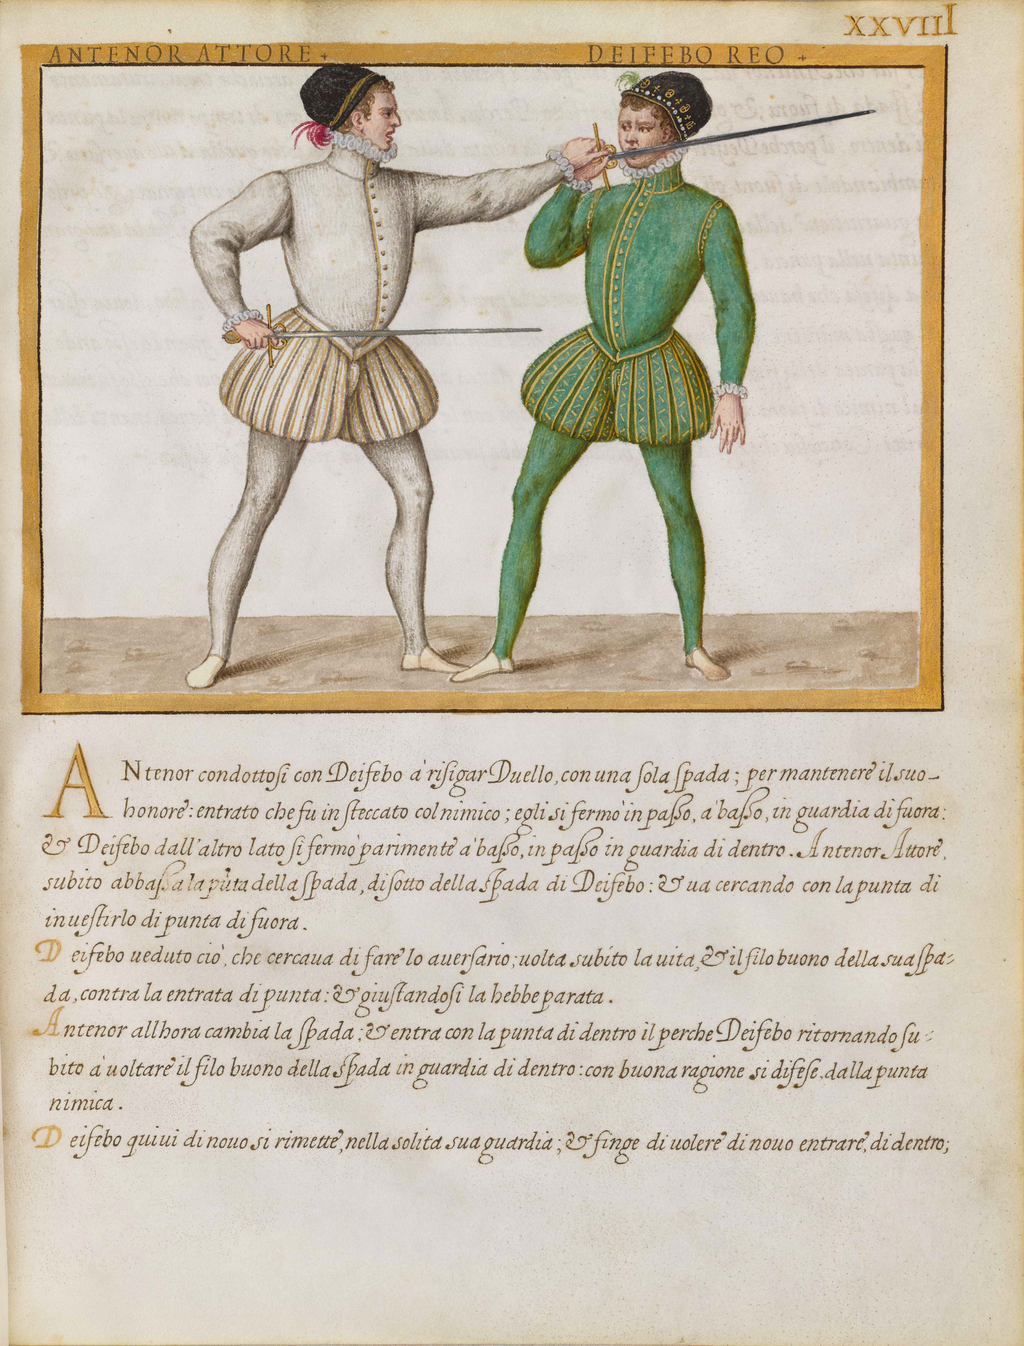 XXVIII
ANTENOR ATTORE +
DEIFEBO REO +
ANtenor condottosi con Deifebo à risigar Duello, con una sola spada; per mantenere il suo
honore: entrato che fu in steccato col nimico; egli si fermò in passo, a basso, in guardia di fuora:
& Deifebo dall'altro lato si fermò parimente a basso, in passo in guardia di dentro. Antenor Attore,
subito abbassa la pūta della spada, di sotto della spada di Deifebo: & ua cercando con la punta di
inuestirlo di punta di fuora.
Deifebo ueduto ciò, che cercaua di fare lo auersario; uolta subito la uita, & il filo buono della sua spa=
da, contra la entrata di punta: & giustandosi la hebbe parata.
Antenor allhora cambia la spada; & entra con la punta di dentro il perche Deifebo ritornando su=
bito à uoltare il filo buono della spada in guardia di dentro: con buona ragione si difese dalla punta
nimica.
Deifebo quiui di nouo si rimette, nella solita sua guardia; & finge di uolere di nouo entrare, di dentro;